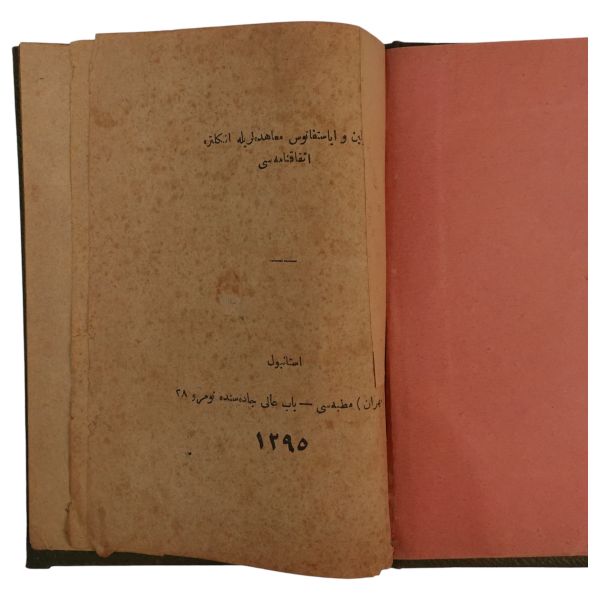 ین و ایاستفانوس معاهده‌لریله انکلتره
اتفاقنامه‌سی
استانبول
هران ) مطبعه‌سی — باب عالی جاده‌سنده نومرو ۲۸
۱۲۹۵